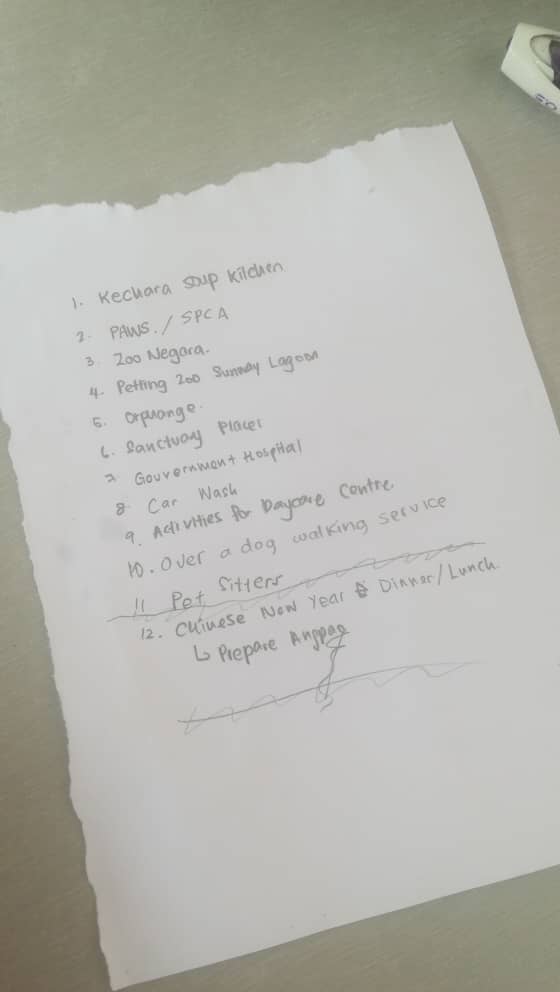 1. Kechara Soup Kitchen
2. PAWS. / SPCA
3. Zoo Negara.
4. Petting Zoo Sunway Lagoon
5. Orpuange.
6. Sanctuary Places
7. Gouvernment Hospital
8. Car Wash
9. Activities for Daycare Centre
10. Over a dog walking service
11. Pet Sitters
12. Chinese New Year Dinner/Lunch.
↳ Prepare Angpao